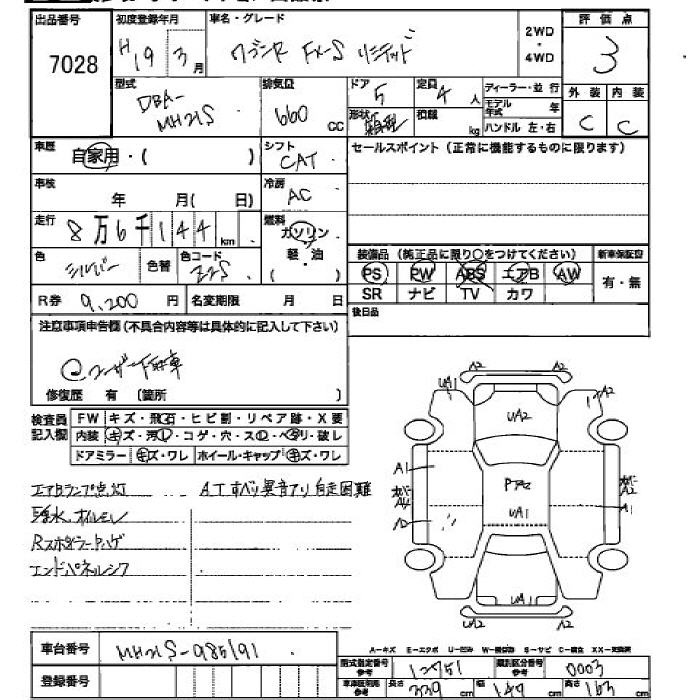 出品番号 初度登録年月 車名・グレード 2WD・4WD 評価点
7028 H19 3月 ワゴンR FX-S リミテッド 3
型式 排気量 ドア 定員 ディーラー・並行 外装 内装
DBA-MH21S 660CC 5 4人 モデル年式 年 C C
形状 積載 kg ハンドル 左・右
車歴 自家用・( ) シフト CAT セールスポイント(正常に機能するものに限ります)
車検 年 月( 日) 冷房 AC
走行 8万6千144km 燃料 ガソリン 軽・油 ( )
色 シルバー 色替 色コード Z2S
装備品(純正品に限り○をつけてください) 新車保証書
PS PW ABS エアB AW 有・無
SR ナビ TV カワ
R券 9,200円 名変期限 月 日 後日品
注意事項申告欄(不具合内容等は具体的に記入して下さい)
ユーザー下取車
修復歴 有 (箇所 )
検査員記入欄 FW キズ・飛石・ヒビ割・リペア跡・X要
内装 キズ・汚レ・コゲ・穴・スレ・ヘタリ・破レ
ドアミラー キズ・ワレ ホイール・キャップ キズ・ワレ
エアBランプ点灯 ATすべり異音アリ自走困難
オイルモレ
エンドパネルシワ
A2 UA1 A2 A2
UA2
A1 Pアセ A2
A2 UA1 A1
UA1
A2 A2
車台番号 MH21S-985191
A-キズ E-エクボ U-凹み S-サビ
登録番号 型式指定番号 参考 12751 類別区分番号 参考 0003
長さ 339cm 幅 147cm 高さ 163cm